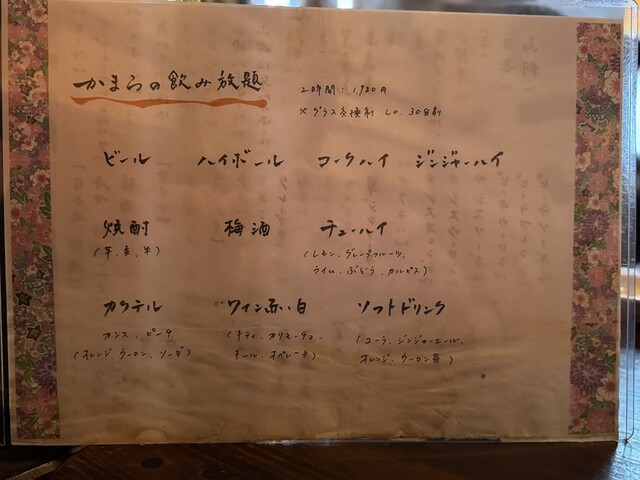 かまらの飲み放題
2時間：1,980円
※グラス交換制 LO.30分前
ビール ハイボール コークハイ ジンジャーハイ
焼酎 梅酒 チューハイ
(芋、麦、米)
(レモン、グレープフルーツ、
ライム、ぶどう、カルピス)
カクテル ワイン赤い白 ソフトドリンク
カシス、ピーチ
(オレンジ、ウーロン、ソーダ)
(キティ、カリモーチョ、
キール、オペレータ)
(コーラ、ジンジャーエール、
オレンジ、ウーロン茶)